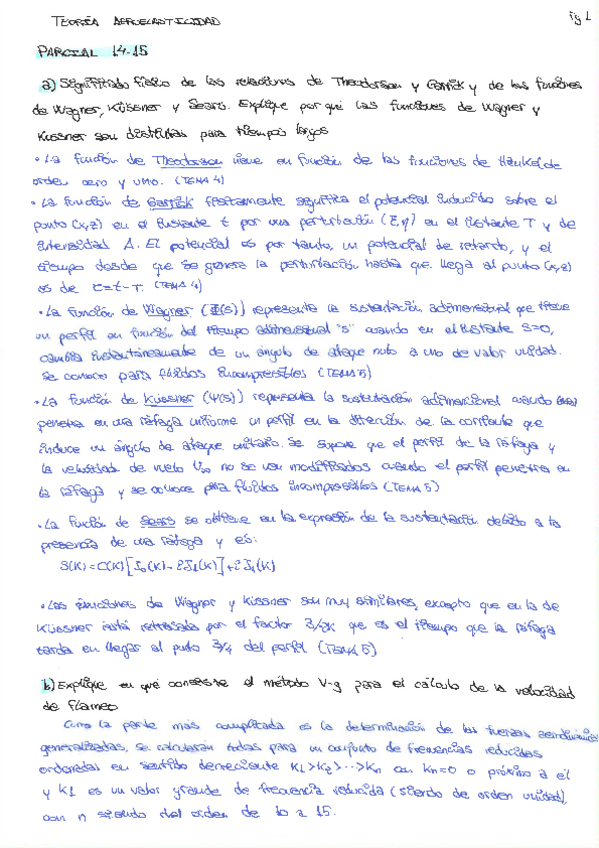 TEORÍA AEROELASTICIDAD
Pg 1
PARCIAL 14-15
a) Significado físico de las relaciones de Theodorsen y Garrick y de las funciones
de Wagner, Küssner y Sears. Explique por qué las funciones de Wagner y
Kussner son distintas para tiempos largos
• La función de Theodorsen viene en función de las funciones de Hankel de
orden cero y uno. (TEMA 4)
• La función de Garrick físicamente significa el potencial inducido sobre el
punto (x,z) en el instante t por una perturbación (ξ,η) en el instante T y de
intensidad A. El potencial es por tanto, un potencial de retardo, y el
tiempo desde que se genera la perturbación hasta que llega al punto (x,z)
es de τ=t-T. (TEMA 4)
• La función de Wagner (Φ(s)) representa la sustentación adimensional que tiene
un perfil en función del tiempo adimensional "s" cuando en el instante s=0,
cambia instantáneamente de un ángulo de ataque nulo a uno de valor unidad.
Se conoce para fluidos incompresibles (TEMA 5)
• La función de Küssner (Ψ(s)) representa la sustentación adimensional cuando
penetra en una ráfaga uniforme un perfil en la dirección de la corriente que
induce un ángulo de ataque unitario. Se supone que el perfil de la ráfaga y
la velocidad de vuelo U∞ no se ven modificados cuando el perfil penetra en
la ráfaga y se conoce para fluidos incompresibles (TEMA 5)
• La función de Sears se obtiene en la expresión de la sustentación debido a la
presencia de una ráfaga y es:
S(K)=C(K)[J₀(K)-iJ₁(K)]+iJ₁(K)
• Las funciones de Wagner y Küssner son muy similares, excepto que en la de
Küssner está retrasada por el factor que es el tiempo que la ráfaga
tarda en llegar al punto 3/4 del perfil (TEMA 5)
b) Explique en qué consiste el método V-g para el cálculo de la velocidad
de flameo
Como la parte más complicada es la determinación de las fuerzas aerodinámicas
generalizadas, se calcularán todas para un conjunto de frecuencias reducidas
ordenadas en sentido decreciente K₁>K₂>···>Kn con Kn=0 o próximo a él
y K1 es un valor grande de frecuencia reducida (siendo de orden unidad),
con n siendo del orden de 10 a 15.